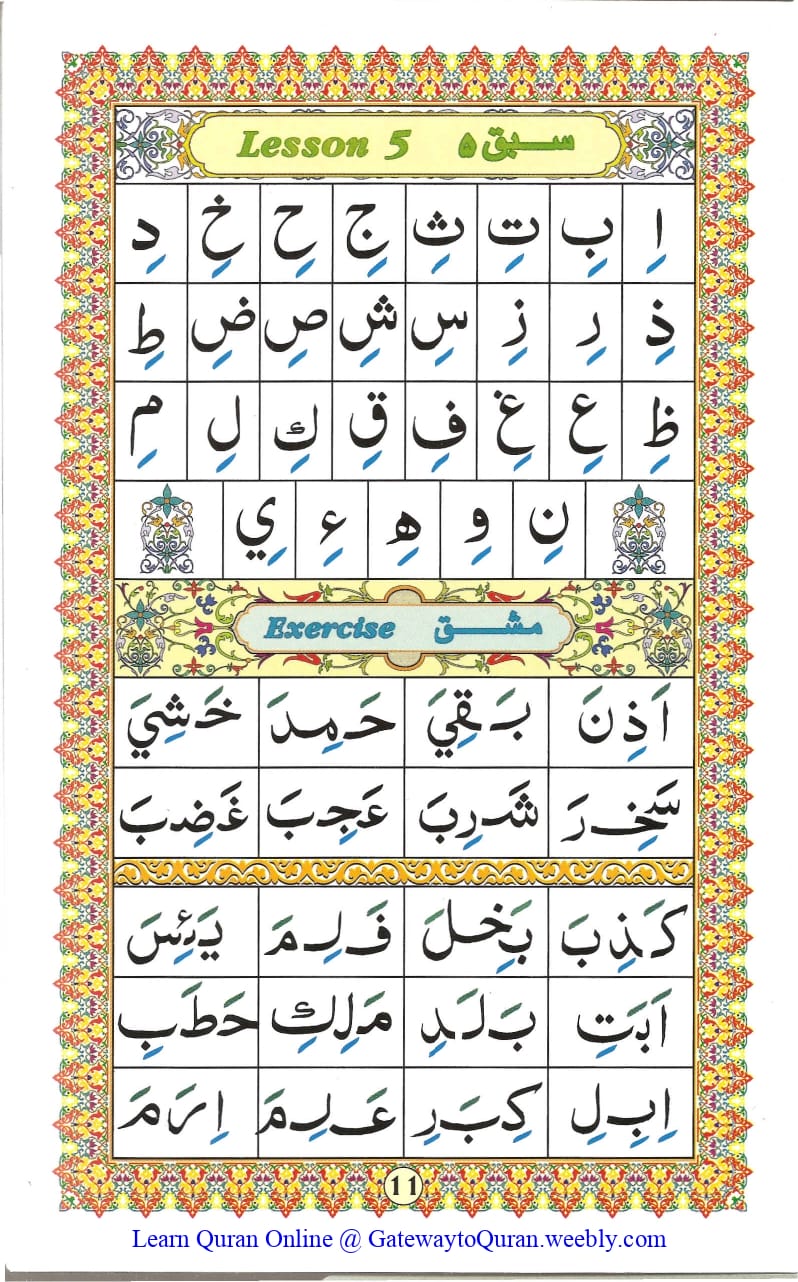 Lesson 5 سبق ۵
اِ بِ تِ ثِ جِ حِ خِ دِ
ذِ رِ زِ سِ شِ صِ ضِ طِ
ظِ عِ غِ فِ قِ كِ لِ مِ
نِ وِ هِ ءِ يِ
Exercise مشق
اَذِنَ بَقِيَ حَمِدَ خَشِيَ
سَخِرَ شَرِبَ عَجِبَ غَضِبَ
كَذِبَ بَخِلَ فَلِمَ يَئِسَ
اَبَتِ بَلَدِ مَلِكِ حَطَبِ
اِبِلِ كِبَرِ عَلِمَ اِرَمَ
11
Learn Quran Online @ GatewaytoQuran.weebly.com